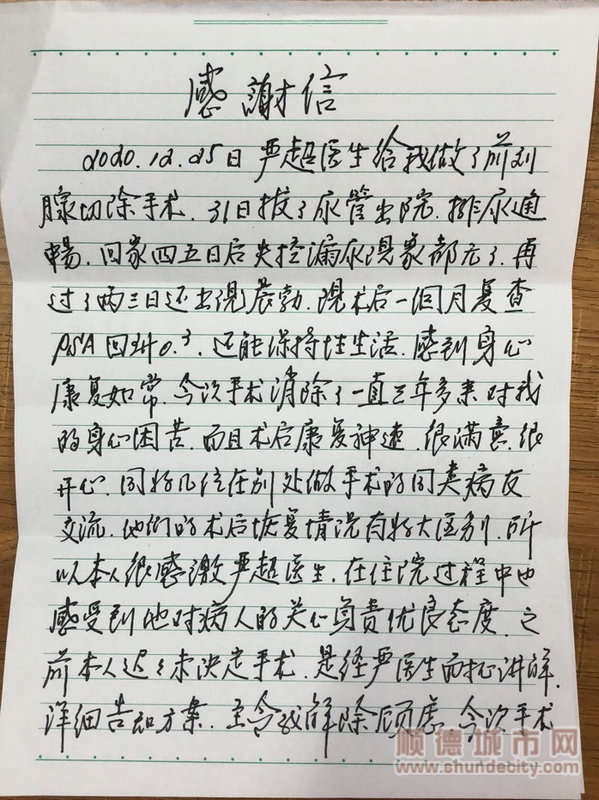 感謝信
2020.12.25日严超医生给我做了前列
腺切除手术.31日拔了尿管出院.排尿通
暢.回家四五日后失控漏尿現象都冇了.再
过了两三日还出現晨勃.現术后一個月复查
PSA回到0.3.还能保持性生活.感到身心
康复如常.今次手术消除了一直三年多来对我
的身心困苦.而且术后康复神速.很满意.很
开心.同好几位在别处做手术的同类病友
交流.他们的术后恢复情況有好大区别.所
以本人很感激严超医生.在住院过程中也
感受到他对病人的关心負责优良态度.之
前本人迟々未决定手术.是经严医生面
讲解.
详细告知方案.至令我解除顾虑.今次手术
顺德城市网
www.shundecity.com